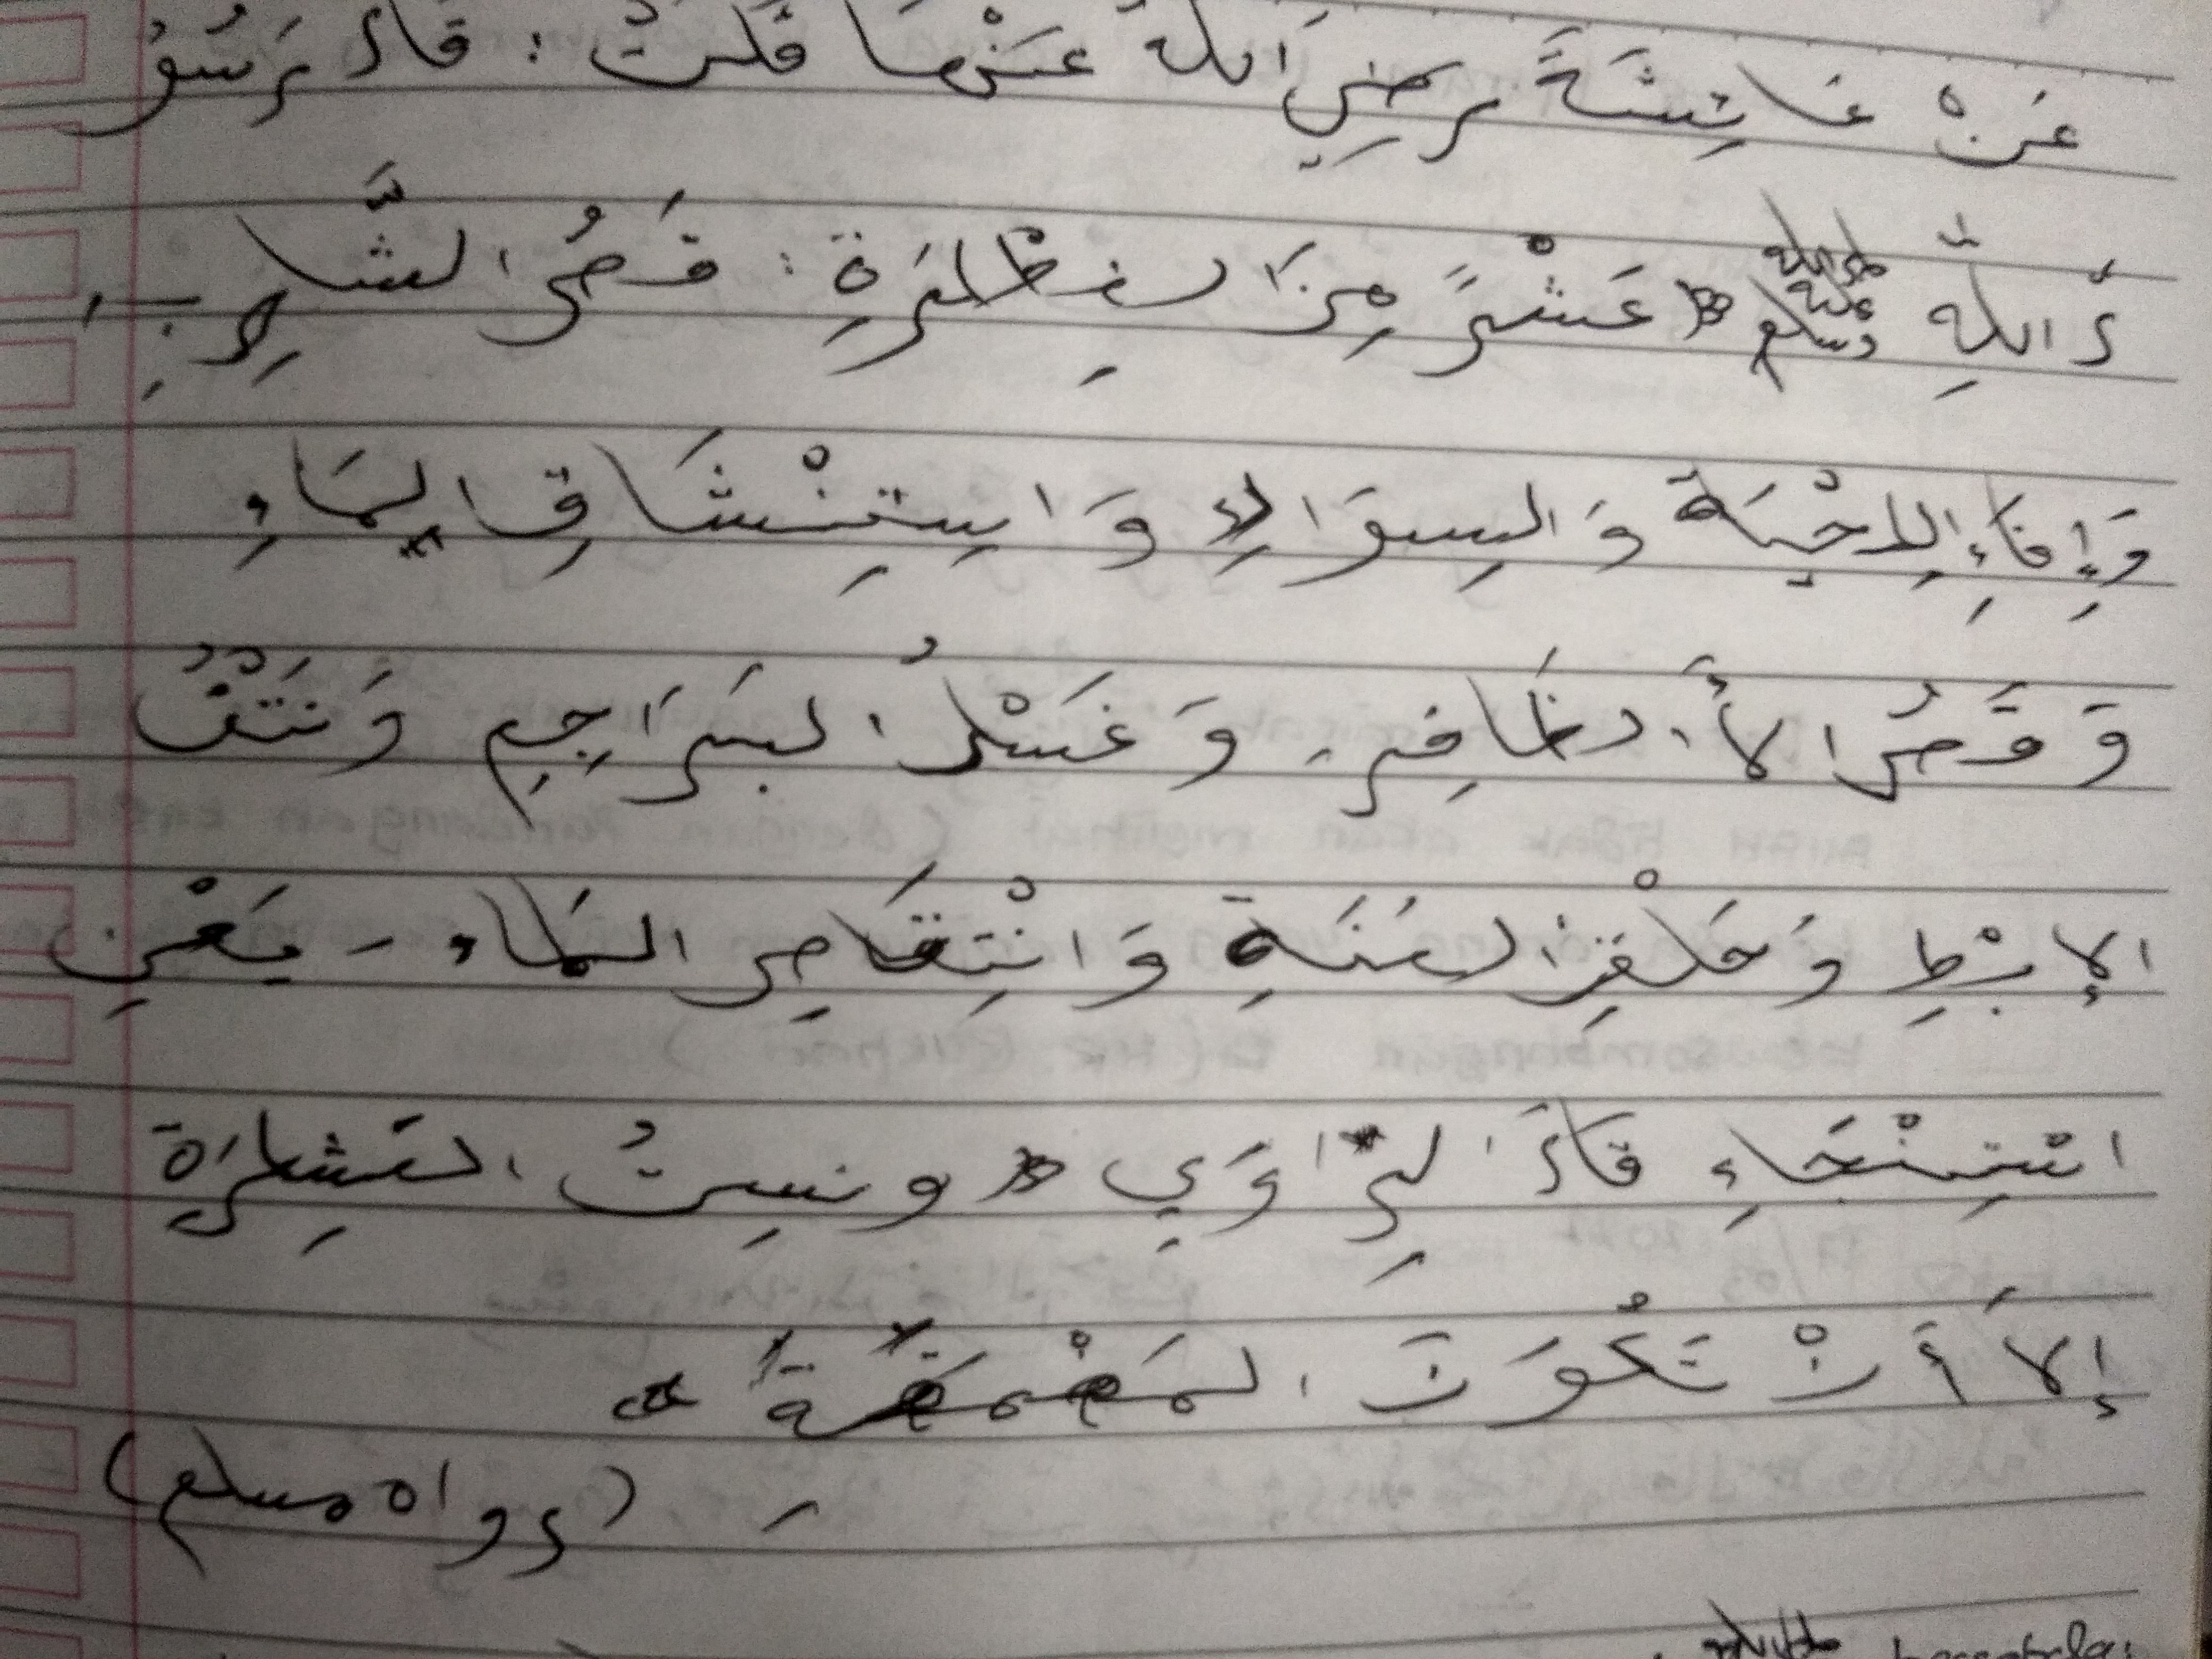 عَنْ عَائِشَةَ رَضِيَ اللهُ عَنْهَا قَلَتْ : قَالَ رَسُوْ
لُ اللّٰهِ صلى الله عليه وسلم « عَشْرٌ مِنَ الفِطْرَةِ : قَصُّ الشَّارِبِ ،
وَإِفَاءِ اللِحْيَةَ وَالسِوَاكِ وَاسِتِنْشَاقِ الِمَاءِ
وَقَصُّ الأَظَافِرِ وَغَسْلُ البَرَاجِمِ وَنَتْفُ
الإِبْطِ وَحَلْقِ العَنَةِ وَانْتِقَاصِ المَاء - يَعْنِ
اسْتِنْجَاءِ قَالَ الرِّاوَيِ « ونسِتُ العَشِرَةَ
إِلاَ أَنْ تَكُوَنَ المَضْمَضَةً »
(رواه مسلم)